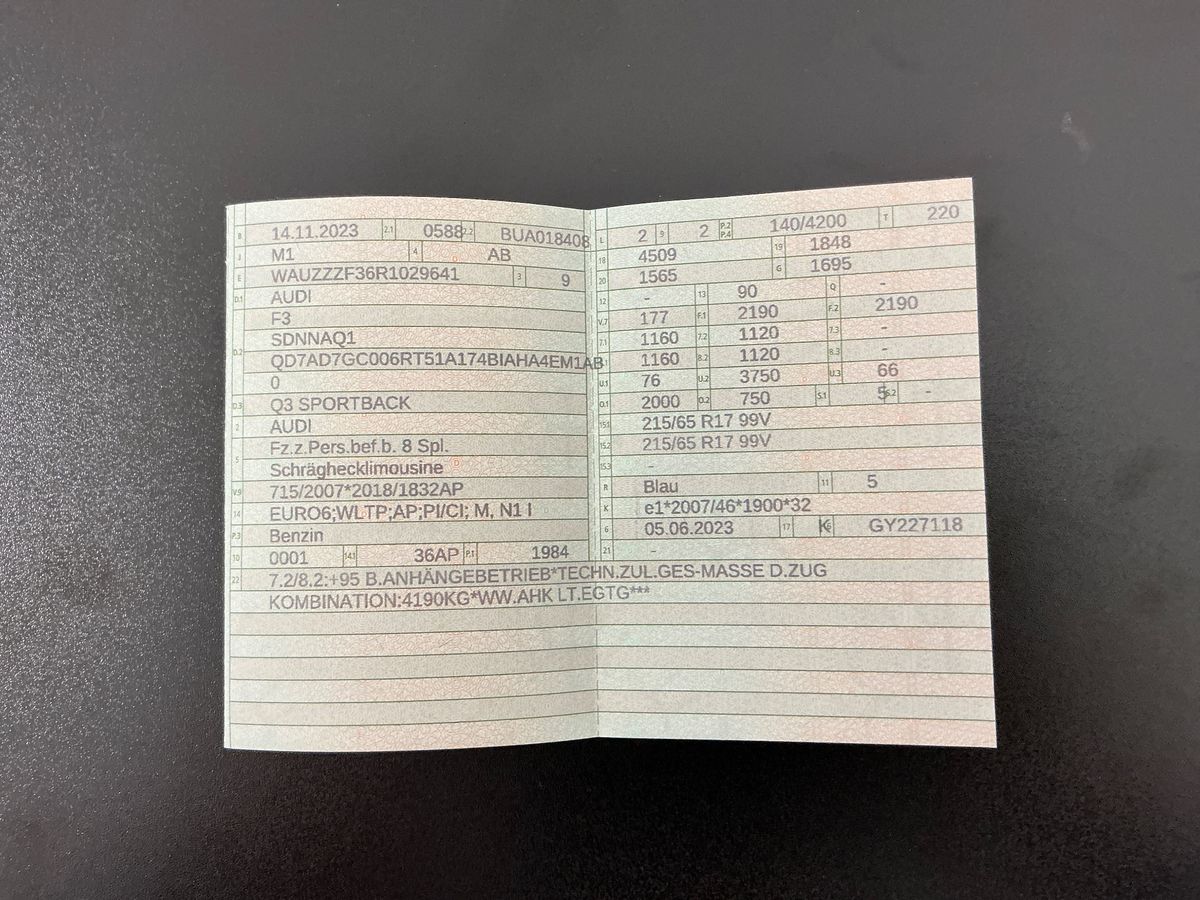 B 14.11.2023 2.1 0588 2.2 BUA018408
J M1 4 AB
E WAUZZZF36R1029641 3 9
D.1 AUDI
F3
SDNNAQ1
D.2 QD7AD7GC006RT51A174BIAHA4EM1AB
0
D.3 Q3 SPORTBACK
2 AUDI
Fz.z.Pers.bef.b. 8 Spl.
5 Schräghecklimousine
V.9 715/2007*2018/1832AP
14 EURO6;WLTP;AP;PI/CI; M, N1 I
P.3 Benzin
10 0001 14.1 36AP P.1 1984
L 2 9 2 P.2 P.4 140/4200 T 220
18 4509 19 1848
20 1565 G 1695
12 - 13 90 Q -
V.7 177 F.1 2190 F.2 2190
7.1 1160 7.2 1120 7.3 -
8.1 1160 8.2 1120 8.3 -
U.1 76 U.2 3750 U.3 66
O.1 2000 O.2 750 S.1 5 S.2 -
15.1 215/65 R17 99V
15.2 215/65 R17 99V
15.3 -
R Blau 11 5
K e1*2007/46*1900*32
6 05.06.2023 17 K 16 GY227118
21 -
22 7.2/8.2:+95 B.ANHÄNGEBETRIEB*TECHN.ZUL.GES-MASSE D.ZUG
KOMBINATION:4190KG*WW.AHK LT.EGTG***